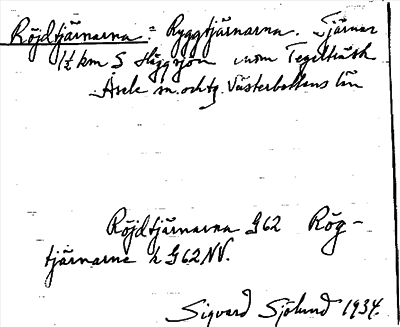 Röjdtjärnarna = Ryggtjärnarna. Tjärnar
1½ km S Häggsjön inom Tegelträsk
Åsele sn. och tg. Västerbottens län
Röjdtjärnarna G62 Rög-
tjärnarna h G62NV.
Sigvard Sjölund 1934.